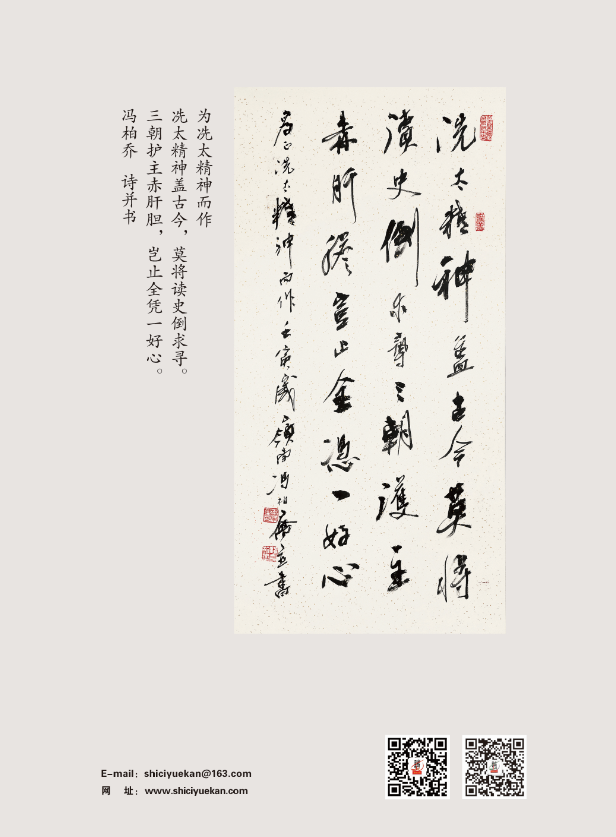 为冼太精神而作
冼太精神盖古今，莫将读史倒求寻。
三朝护主赤肝胆，岂止全凭一好心。
冯柏乔　诗并书
冼太精神盖古今莫将
读史倒求寻三朝護主
赤肝膽豈止全憑一好心
为冼太精神而作壬寅歲嶺南冯柏
E-mail：shiciyuekan@163.com
网　址：www.shiciyuekan.com